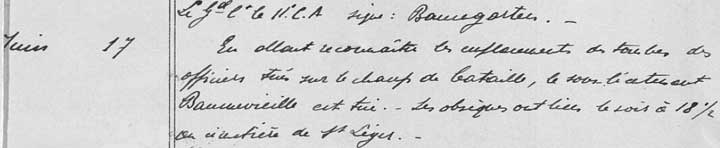 Le Gal Ct le 11e C.A signé : Baumgarten. _
Juin 17 En allant reconnaître les emplacements des tombes des
officiers tués sur le champ de bataille, le sous lieutenant
Bannevieille est tué. _ Les obsèques ont lieu le soir à 18 1/2
au cimetière de St Léger. _